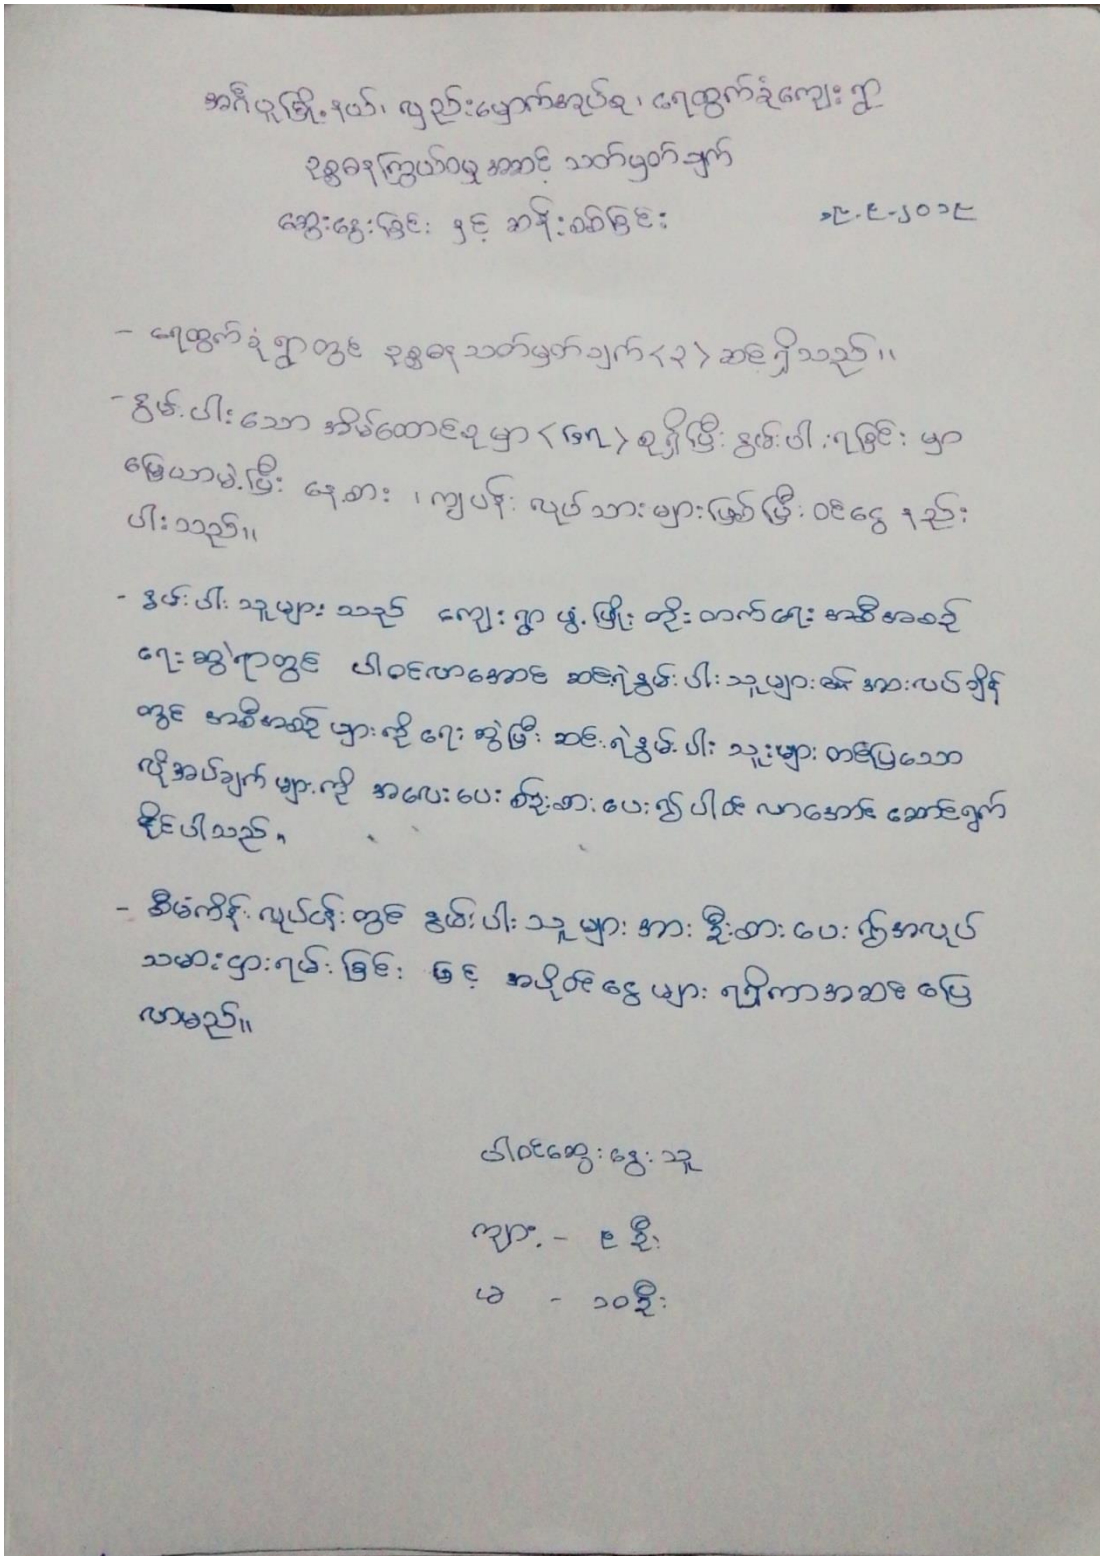 အင်္ဂပူမြို့နယ်၊ လှည်းမှောက်အုပ်စု၊ ရေထွက်ခုံကျေးရွာ
ဥစ္စဓနကြွယ်ဝမှုအဆင့် သတ်မှတ်ချက်
ဆွေးနွေးခြင်း နှင့် ဆန်းစစ်ခြင်း ၁၉.၉.၂၀၁၉
- ရေထွက်ခုံရွာတွင် ဥစ္စဓနသတ်မှတ်ချက် <၃> ဆင့်ရှိသည်။
- နွမ်းပါးသော အိမ်ထောင်စုမှာ စုရှိပြီး နွမ်းပါးရခြင်း မှာ
မြေယာမဲ့ပြီး နေ့စား ၊ ကျပန်း လုပ်သားများဖြစ်ပြီး ဝင်ငွေ နည်း
ပါးသည်။
- နွမ်းပါး သူများ သည် ကျေးရွာ ဖွံ့ဖြိုး တိုးတက်ရေး အစီအစဉ်
ရေးဆွဲရာတွင် ပါဝင်လာအောင် ဆင်းရဲနွမ်းပါးသူများ၏ အားလပ်ချိန်
တွင် အစီအစဉ်များကို ရေးဆွဲပြီး ဆင်းရဲနွမ်းပါး သူများ တင်ပြသော
လိုအပ်ချက်များကို အလေးပေး စဉ်းစားပေး၍ ပါဝင် လာအောင် ဆောင်ရွက်
နိုင်ပါသည်။
- စီမံကိန်းလုပ်ငန်းတွင် နွမ်းပါးသူများ အား ဦးစားပေး၍ အလုပ်
သမားငှားရမ်းခြင်း ဖြင့် အပိုဝင်ငွေများ ရရှိကာ အဆင်ပြေ
လာမည်။
ပါဝင်ဆွေးနွေးသူ
ကျား - ၉ ဦး
မ - ၁၀ဦး